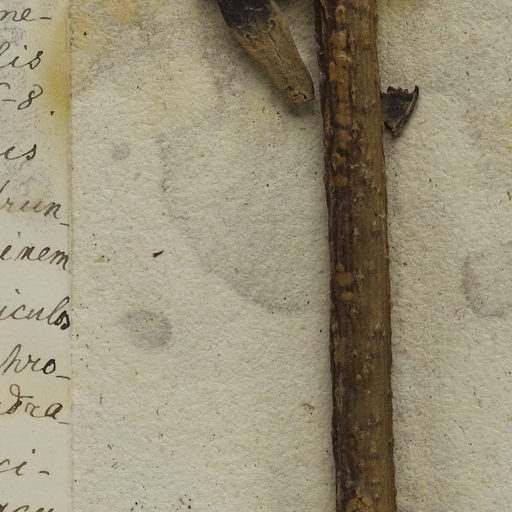 me-
lis
-8.
is
drun-
inem
iculos
hro-
dra-
ci-